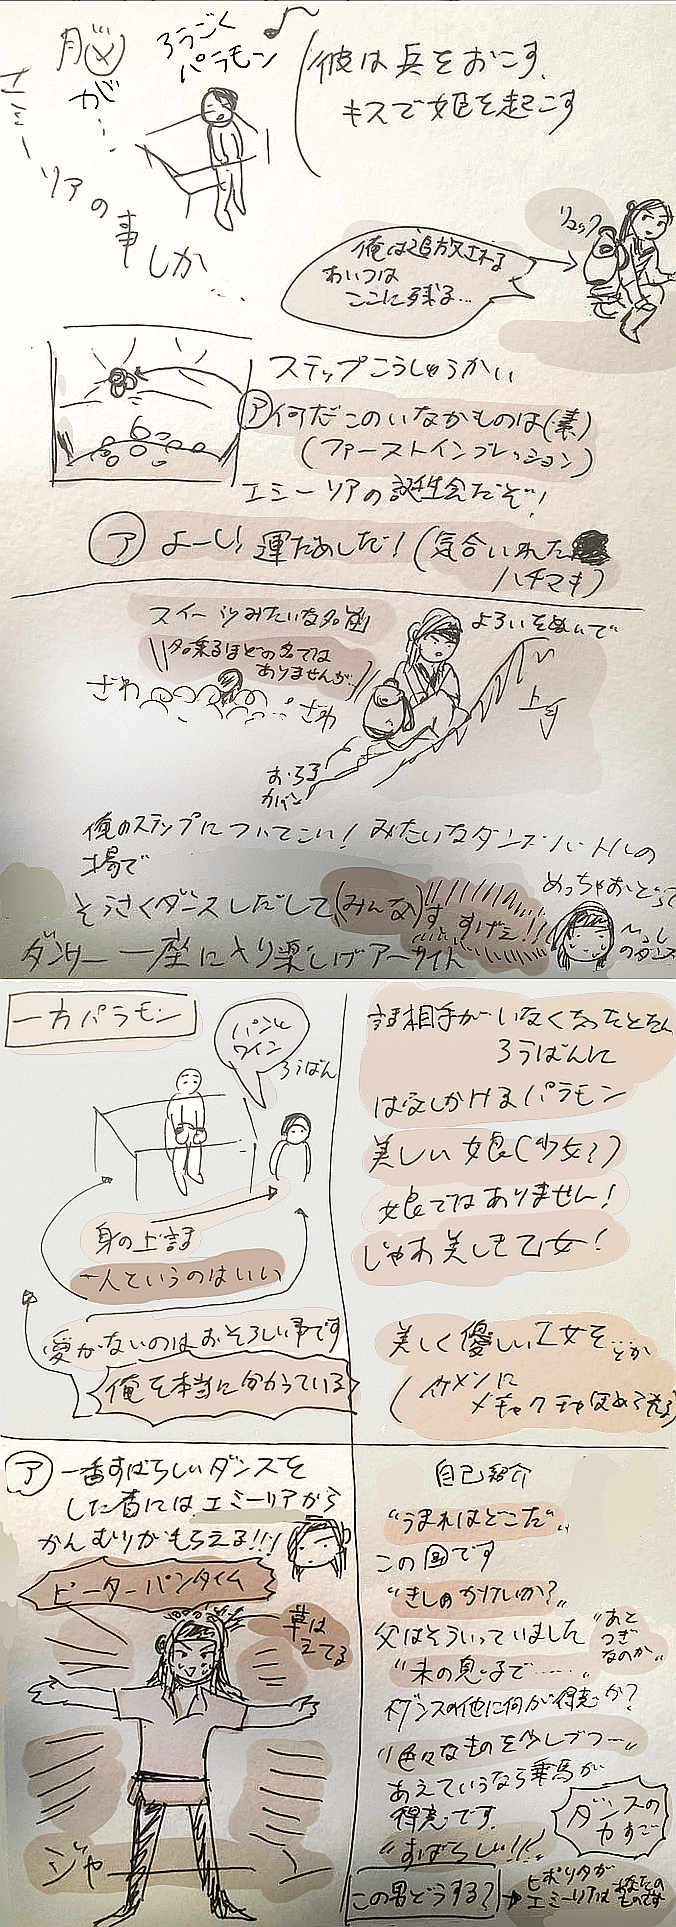 脳が…
エミーリアの事しか…
ろうごく
パラモン
彼は兵をおこす、
キスで姫を起こす
リュック
俺は追放される
あいつは
ここに残る…
ステップこうしゅうかい
ア 何だこのいなかものは(素)
(ファーストインプレッション)
エミーリアの誕生会だぞ!
ア よーし!運だめしだ!(気合いれた
ハチマキ)
スイーツみたいな名前
名乗るほどの名では
ありませんが
ざわ
ざわ
よろいをぬいで
上手
おろち
カバン
俺のステップについてこい!みたいなダンスバトルの
場で
そうさくダンスしだして(みんな)す、すげぇ!!
めっちゃおどって
ダンサー一座に入り楽しげアーサイト
のダンス
一方パラモン
パンと
ワイン
ろうばん
身の上話
一人というのはいい
愛がないのはおそろしい事です
俺を本当に分かっている
話相手がいなくなったとたん
ろうばんに
はなしかけるパラモン
美しい娘(少女?)
娘ではありません!
じゃあ美しき乙女!
美しく優しい乙女を…とか
(イケメンに
メチャクチャほめられる)
ア 一番すばらしいダンスを
した者にはエミーリアから
かんむりがもらえる!!!
ピーターパンタイム
草は
えてる
ジャーーン
自己紹介
"うまれはどこだ"
この国です
"きしのかけいか?"
父はそういっていました
"あと
つぎ
なのか"
"末の息子で……"
"ダンスの他に何が得意か?
"色々なものを少しづつ…"
あえていうなら乗馬が
得意です。
"すばらしい!!"
ダンスの
力すご
この男どうする?
ヒポリタが
エミーリアはあなたの
ものです